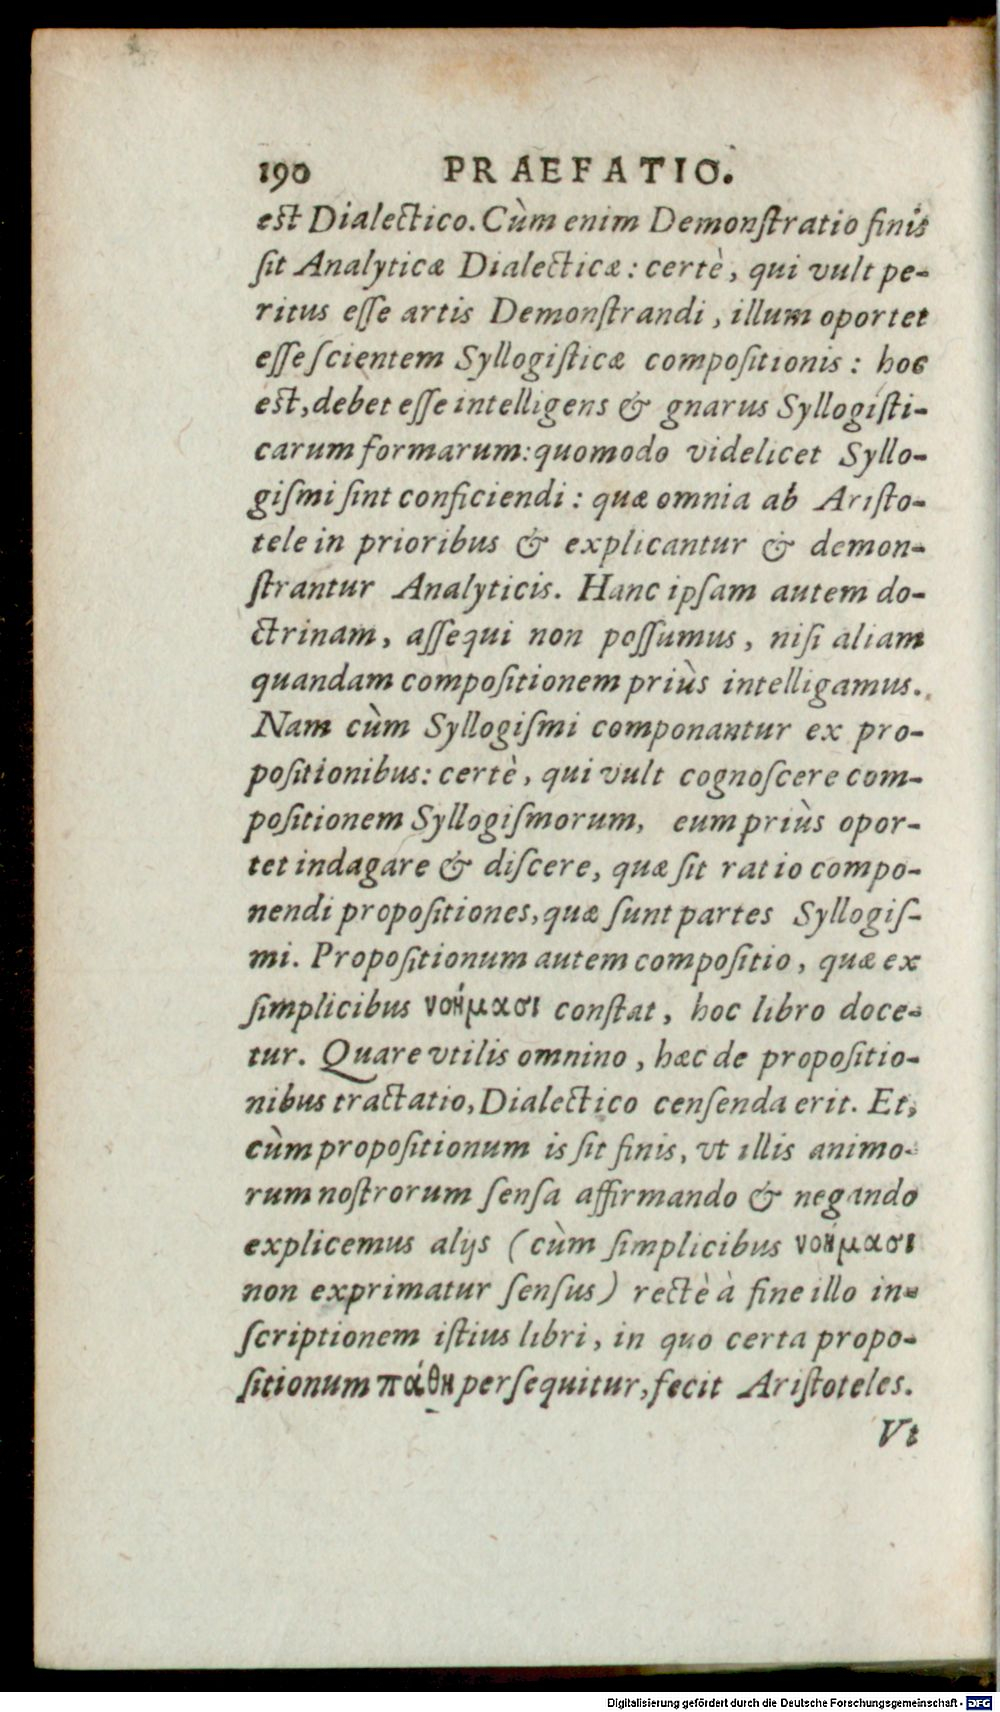 190 PRAEFATIO.
est Dialectico. Cùm enim Demonſtratio finis
ſit Analyticæ Dialecticæ: certè, qui vult pe-
ritus eſſe artis Demonſtrandi, illum oportet
eſſe ſcientem Syllogiſticæ compoſitionis: hoc
est, debet eſſe intelligens & gnarus Syllogiſti-
carum formarum: quomodo videlicet Syllo-
giſmi ſint conficiendi: quæ omnia ab Ariſto-
tele in prioribus & explicantur & demon-
ſtrantur Analyticis. Hanc ipſam autem do-
ctrinam, aſſequi non poſſumus, niſi aliam
quandam compoſitionem priùs intelligamus.
Nam cùm Syllogiſmi componantur ex pro-
poſitionibus: certè, qui vult cognoſcere com-
poſitionem Syllogiſmorum, eum priùs opor-
tet indagare & diſcere, quæ ſit ratio compo-
nendi propoſitiones, quæ ſunt partes Syllogiſ-
mi. Propoſitionum autem compoſitio, quæ ex
ſimplicibus νοήμασι conſtat, hoc libro doce-
tur. Quare vtilis omnino, hæc de propoſitio-
nibus tractatio, Dialectico cenſenda erit. Et,
cùm propoſitionum is ſit finis, vt illis animo-
rum noſtrorum ſenſa affirmando & negando
explicemus alijs (cùm ſimplicibus νοήμασι
non exprimatur ſenſus) rectè à fine illo in-
ſcriptionem iſtius libri, in quo certa propo-
ſitionum πάθη perſequitur, fecit Ariſtoteles.
Vt
Digitalisierung gefördert durch die Deutsche Forschungsgemeinschaft - DFG